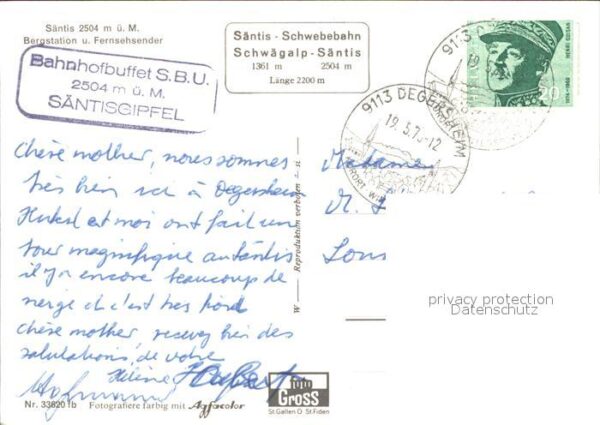 Säntis 2504 m ü. M.
Bergstation u. Fernsehsender
Bahnhofbuffet S.B.U.
2504 m ü. M.
SÄNTISGIPFEL
Säntis - Schwebebahn
Schwägalp - Säntis
1361 m 2504 m
Länge 2200 m
9113
HELVETIA
20
HENRI GUISAN
1874-1960
9113 DEGERSHEIM
19.5.7 -12
KURORT
Chère mother, nous sommes
très bien ici à Degersheim
et moi ont fait un
tour magnifique au Säntis
il y a encore beaucoup de
neige et c'est très
Chère mother, recevez bien des
salutations, de votre
Hélène
Hofmann
Madame
M.
Lous
W — Reproduktion verboten
privacy protection
Datenschutz
foto
GROSS
St.Gallen O St.Fiden
Nr. 33620 b Fotografiere farbig mit Agfacolor